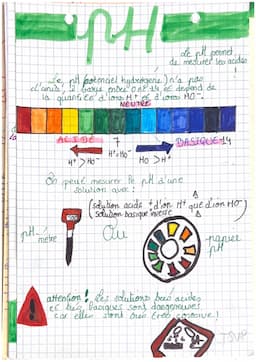 pH
Le pH permet
de mesurer les acides
Le pH (potentiel hydrogène) n'a pas
d'unité, il varie entre 0 et 14 et dépend de
la quantité d'ions H⁺ et d'ions HO⁻.
NEUTRE
ACIDE 7 BASIQUE 14
H⁺ > HO⁻ H⁺=HO⁻ HO⁻ > H⁺
On peut mesurer le pH d'une
solution avec :
(solution acide + d'ion H⁺ que d'ion HO⁻)
solution basique inverse
pH-mètre Ou papier pH
attention ! Les solutions très acides
et très basiques sont dangereuses
car elles sont très